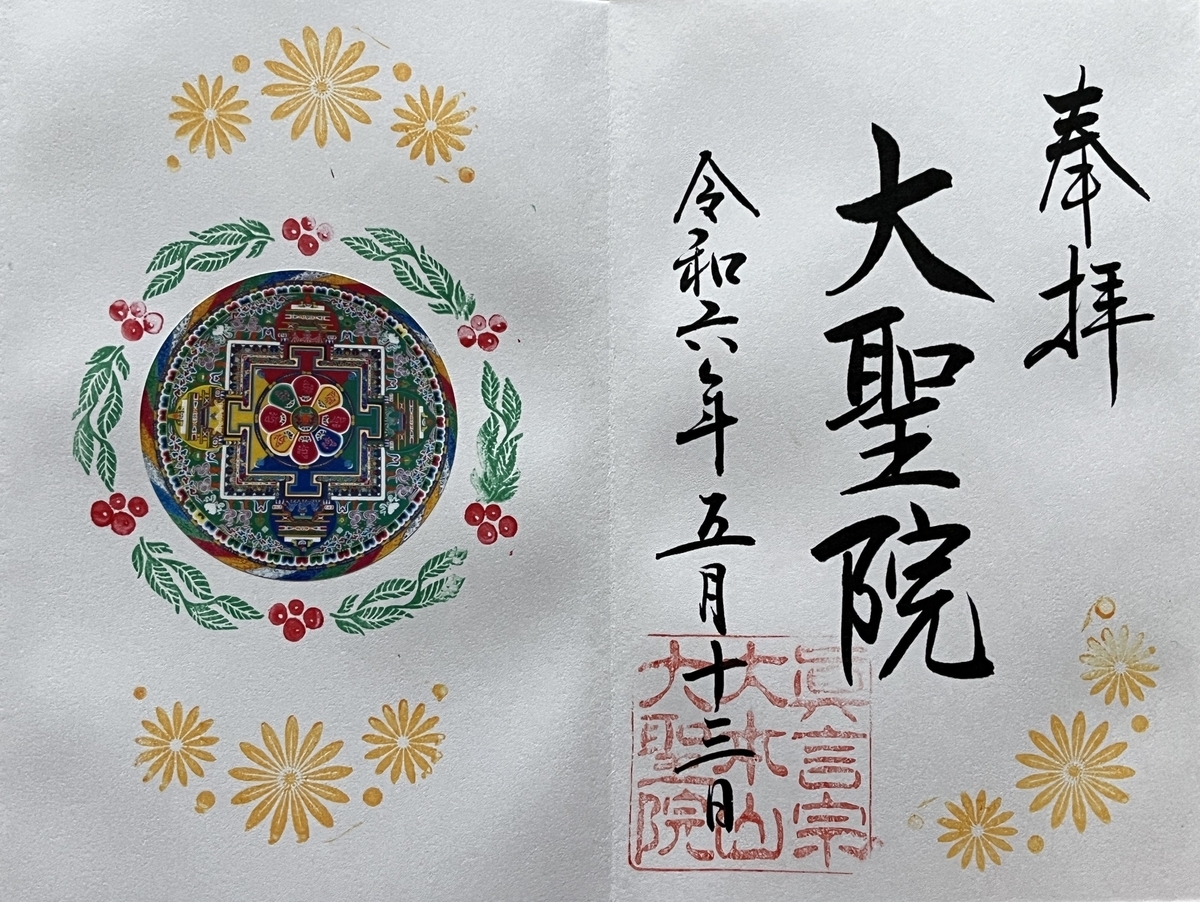 奉拝
大聖院
令和六年五月十三日
眞言宗
大本山
大聖院